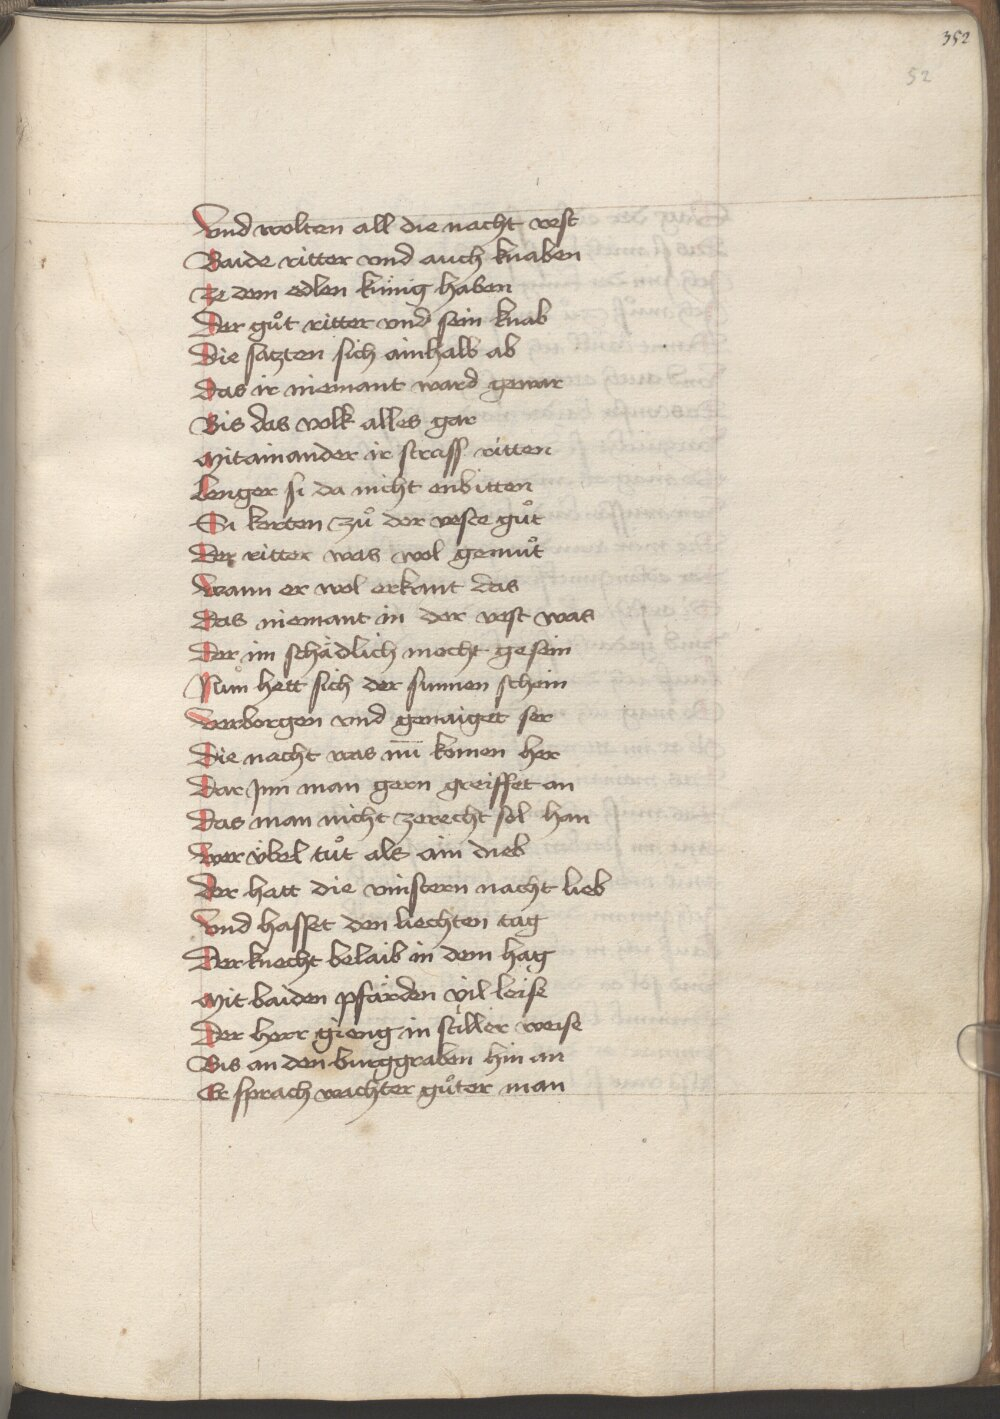 352
52
Vnd wolten all die nacht vest
Baide ritter vnd auch knaben
Ze dem edlen künig haben
Der guͦt ritter vnd sein knab
Die satzten sich ainhalb ab
Das ir niemant ward gewar
Bis das volk alles gar
Mitainander ir strass ritten
Lenger si da nicht enbitten
Si kerten zuͦ der veste guͦt
Der ritter was wol gemuͦt
Wann er wol erkant das
Das niemant in der vest was
Der im schädlich mocht gesein
Nuͦn hett sich der sunnen schein
Verborgen vnd genaiget ser
Die nacht was nū komen her
Dar Jnn man gern greiffet an
Das man nicht zerecht sol han
Wer v̈bel tuͦt als ain dieb
Der hatt die vinstern nacht lieb
Vnd hasset den liechten tag
Der knecht belaib in dem hag
Mit baiden pfärden vil leise
Der herr gieng in stiller weise
Bis an den burggraben hin an
Er sprach wachter guͦter man